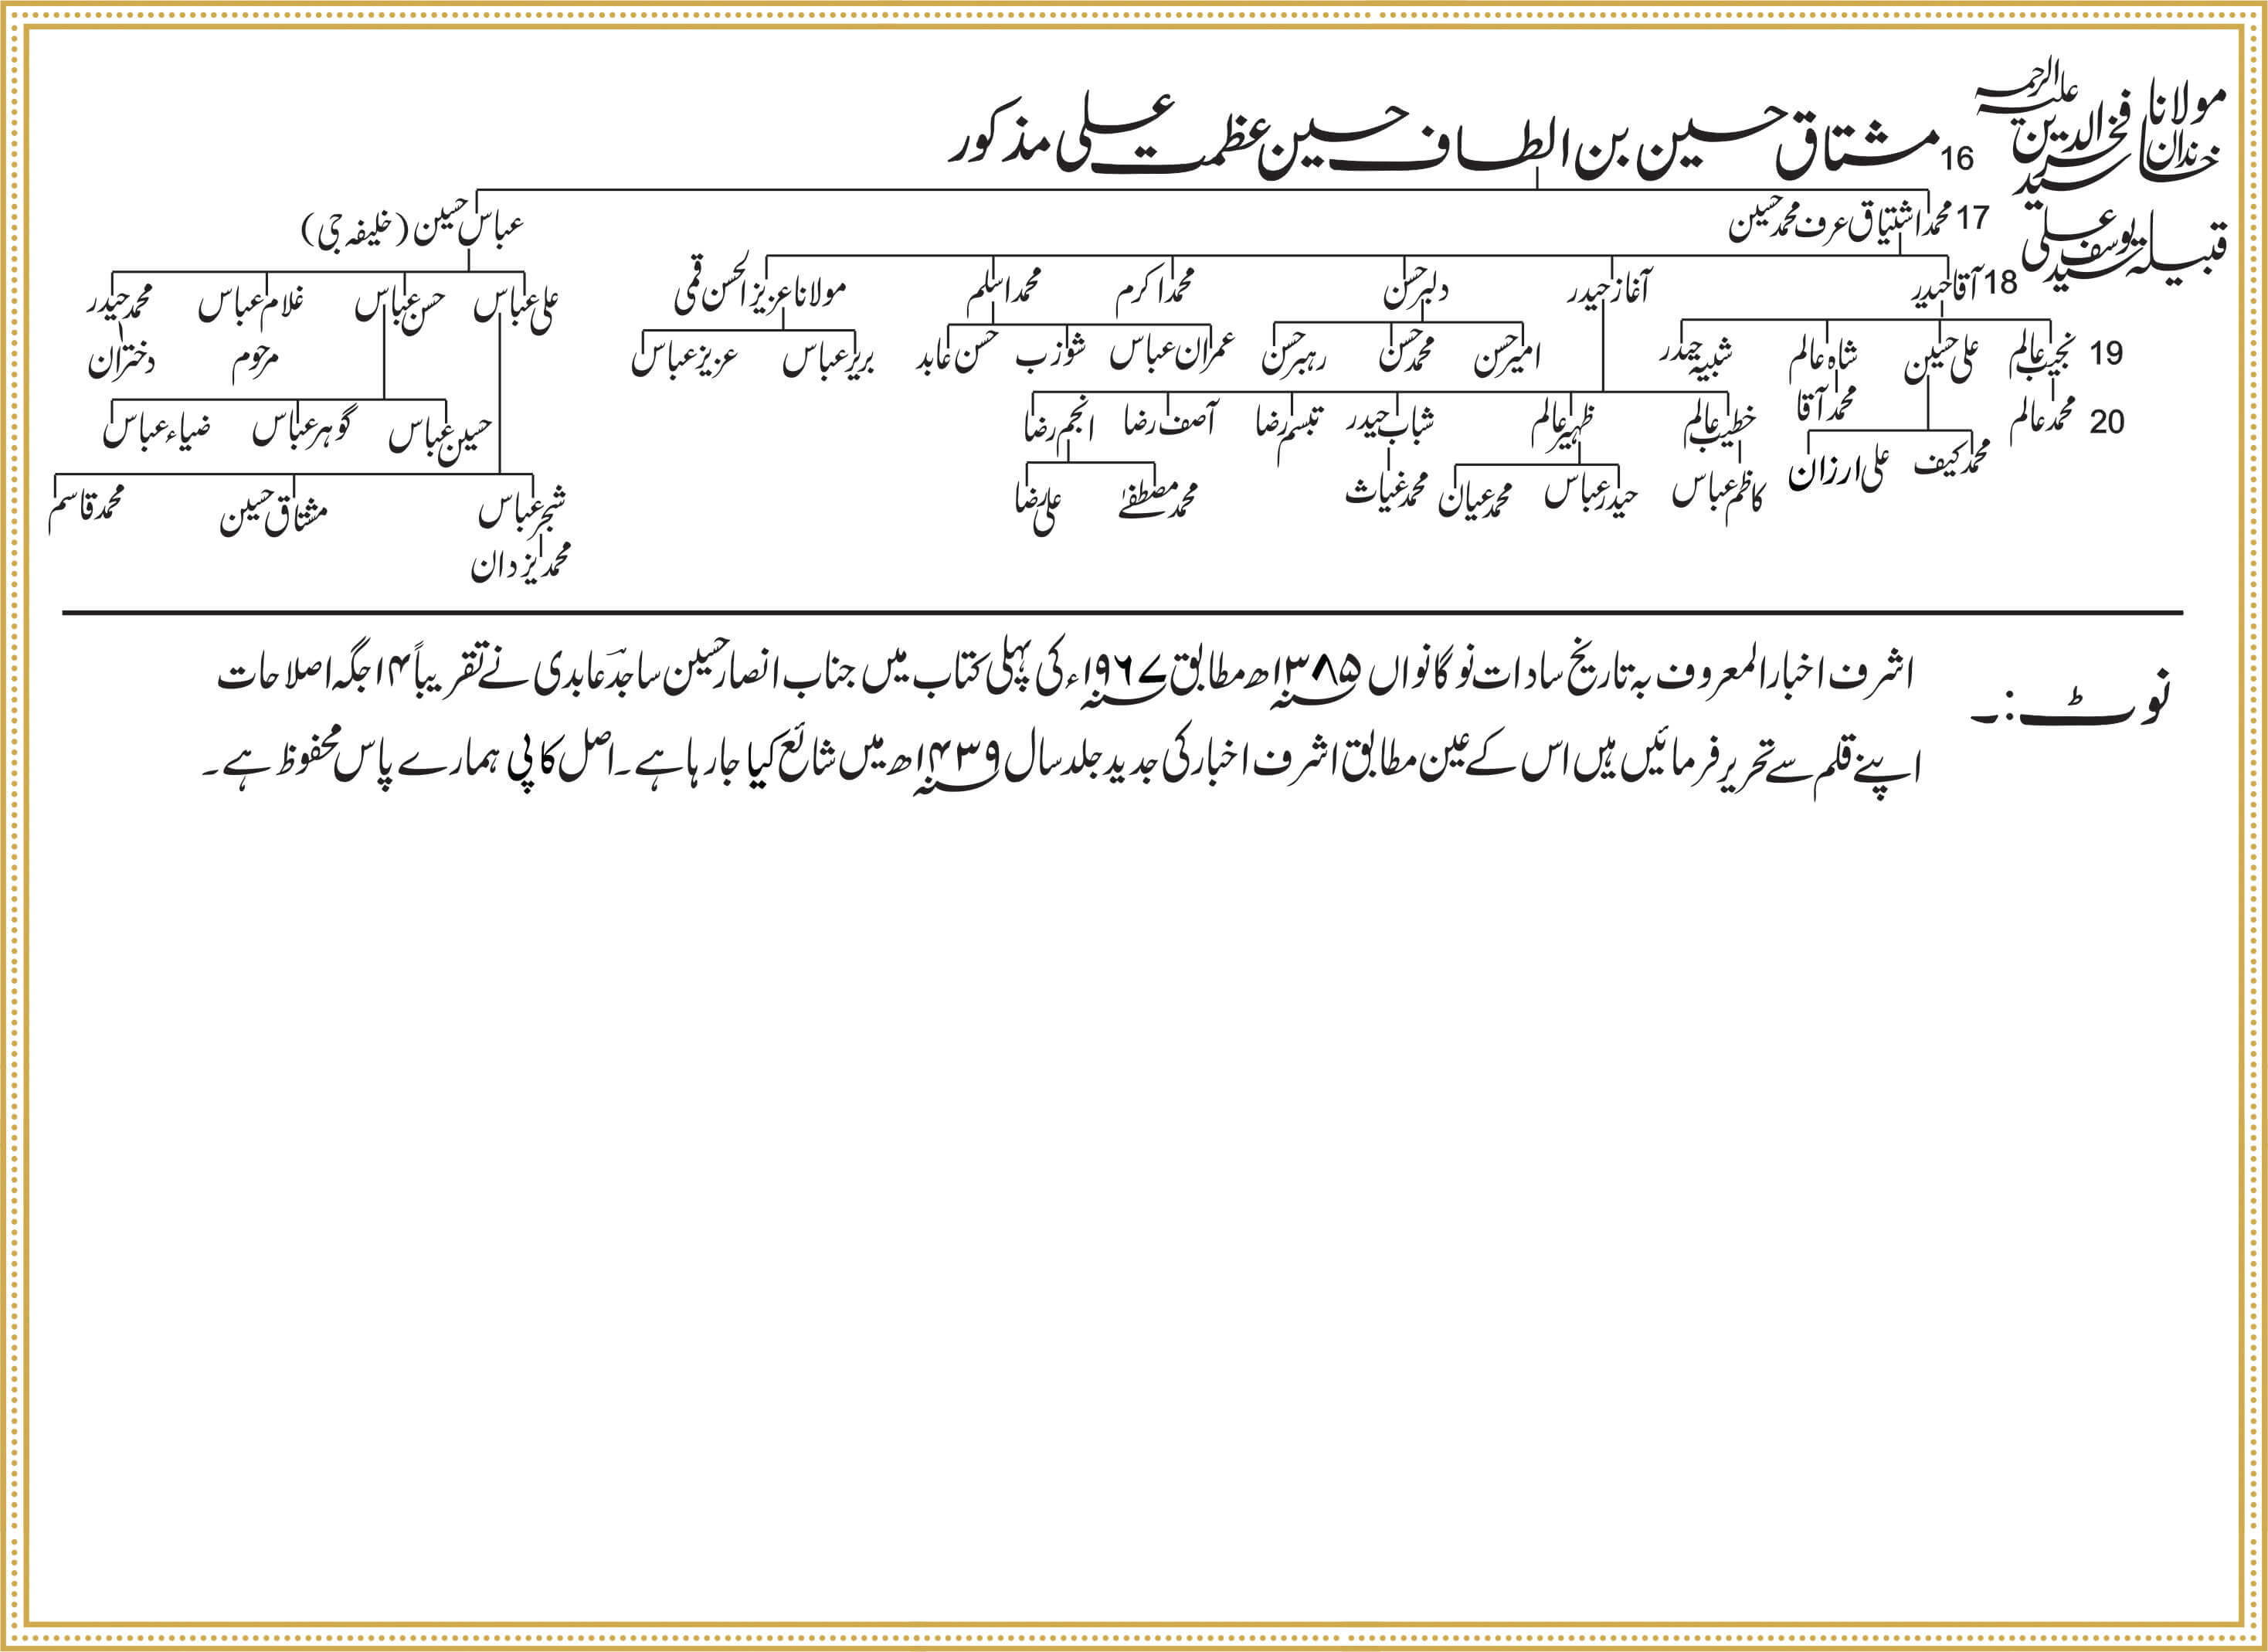 خاندان مولانا سید فخرالدین علیہ الرحمہ
16 مشتاق حسین بن الطاف حسین عظمت علی مذکور
قبیلہ سید یوسف علی
17 محمد اشتیاق عرف محمد حسین عباس حسین (خلیفہ جی)
18 آقا حیدر آغاز حیدر دلبر حسن محمد اکرم محمد اسلم مولانا عزیز الحسن قمی علی عباس حسن عباس غلام عباس محمد حیدر
19 نجیب عالم علی حسین شاہ عالم شبیہ حیدر امیر حسن محمد حسن رہبر حسن عمران عباس شوزب حسن عابد بریر عباس عزیز عباس مرحوم دختران
20 محمد عالم محمد آقا خطیب عالم ظہیر عالم شباب حیدر تبسم رضا آصف رضا انجم رضا حسین عباس گوہر عباس ضیاء عباس
محمد کیف علی ارزان کاظم عباس حیدر عباس محمد عیان محمد غیاث محمد مصطفےٰ علی رضا شجر عباس مشتاق حسین محمد قاسم
محمد یزدان
نوٹ:۔ اشرف اخبار المعروف بہ تاریخ سادات نوگانواں ۱۳۸۵ھ مطابق ۱۹۶۷ء کی پہلی کتاب میں جناب انصار حسین ساجد عابدی نے تقریباً ۱۴ جگہ اصلاحات
اپنے قلم سے تحریر فرمائیں ہیں اس کے عین مطابق اشرف اخبار کی جدید جلد سال ۱۴۳۹ھ میں شائع کیا جا رہا ہے۔ اصل کاپی ہمارے پاس محفوظ ہے۔